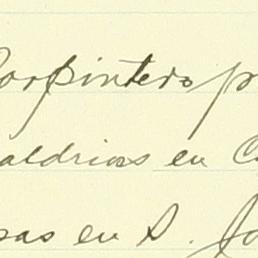 Carpintero p
aldrias en C
sas en S. Jo